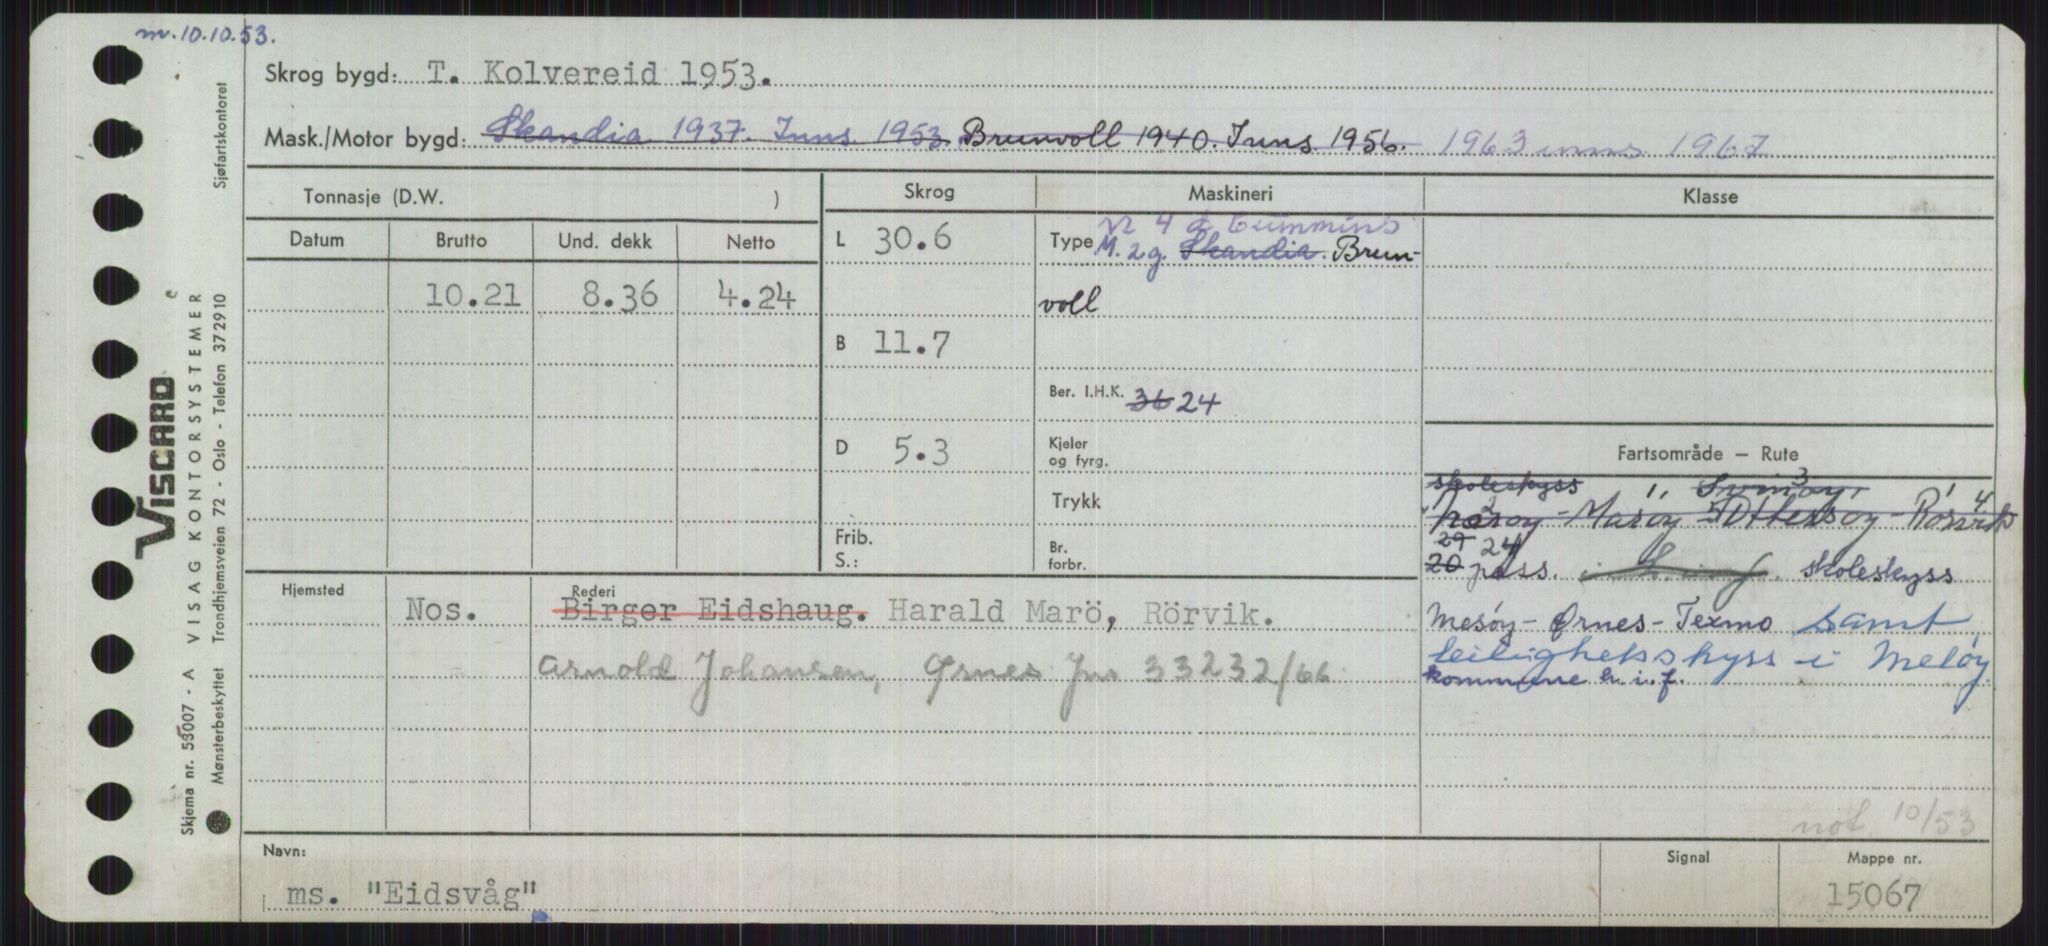 m. 10.10.53.
Skrog bygd: T. Kolvereid 1953.
Mask./Motor bygd: Skandia 1937. Inns 1953. Brunvoll 1940. Inns 1956. 1963 inns 1967
Tonnasje (D.W. )
Skrog
Maskineri
Klasse
Datum Brutto Und. dekk Netto
10.21 8.36 4.24
L 30.6
B 11.7
D 5.3
Frib.
S.:
4 Cummins
Type M. 2g. Skandia. Brun-
voll
Ber. I.H.K. 36 24
Kjeler
og fyrg.
Trykk
Br.
forbr.
Fartsområde — Rute
skoleskyss
Marøy Ottersøy - Rørvik
29 24
20 pass. skoleskyss
Mesøy - Ørnes - Texmo samt
leilighetsskyss i Meløy
kommune h.i.f.
Hjemsted
Rederi
Nos. Birger Eidshaug. Harald Marö, Rörvik.
Arnold Johansen, Ørnes Jnr 33232/66
not. 10/53
Navn:
ms. "Eidsvåg"
Signal
Mappe nr.
15067
VISCARD
VISAG KONTORSYSTEMER
Skjema nr. 53007 - A
Mønsterbeskyttet Trondhjemsveien 72 - Oslo - Telefon 372910
Sjøfartskontoret